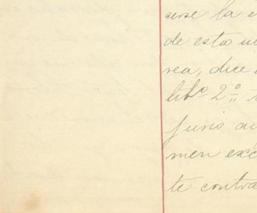 urse la e
de esta u
rea, dice
libº 2º
Junio a
men exc
te contra